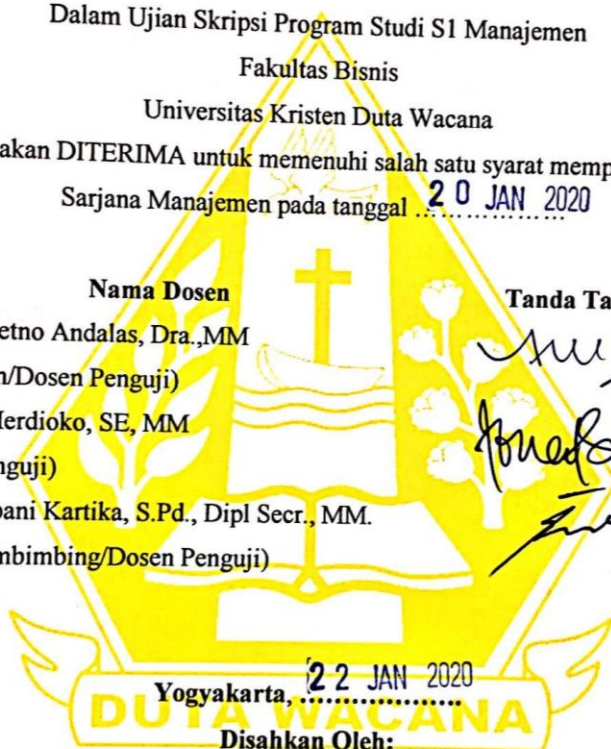 Dalam Ujian Skripsi Program Studi S1 Manajemen
Fakultas Bisnis
Universitas Kristen Duta Wacana
akan DITERIMA untuk memenuhi salah satu syarat memp
Sarjana Manajemen pada tanggal 20 JAN 2020
Nama Dosen Tanda Ta
etno Andalas, Dra.,MM
n/Dosen Penguji)
Herdioko, SE, MM
nguji)
pani Kartika, S.Pd., Dipl Secr., MM.
mbimbing/Dosen Penguji)
Yogyakarta, 22 JAN 2020
DUTA WACANA
Disahkan Oleh: